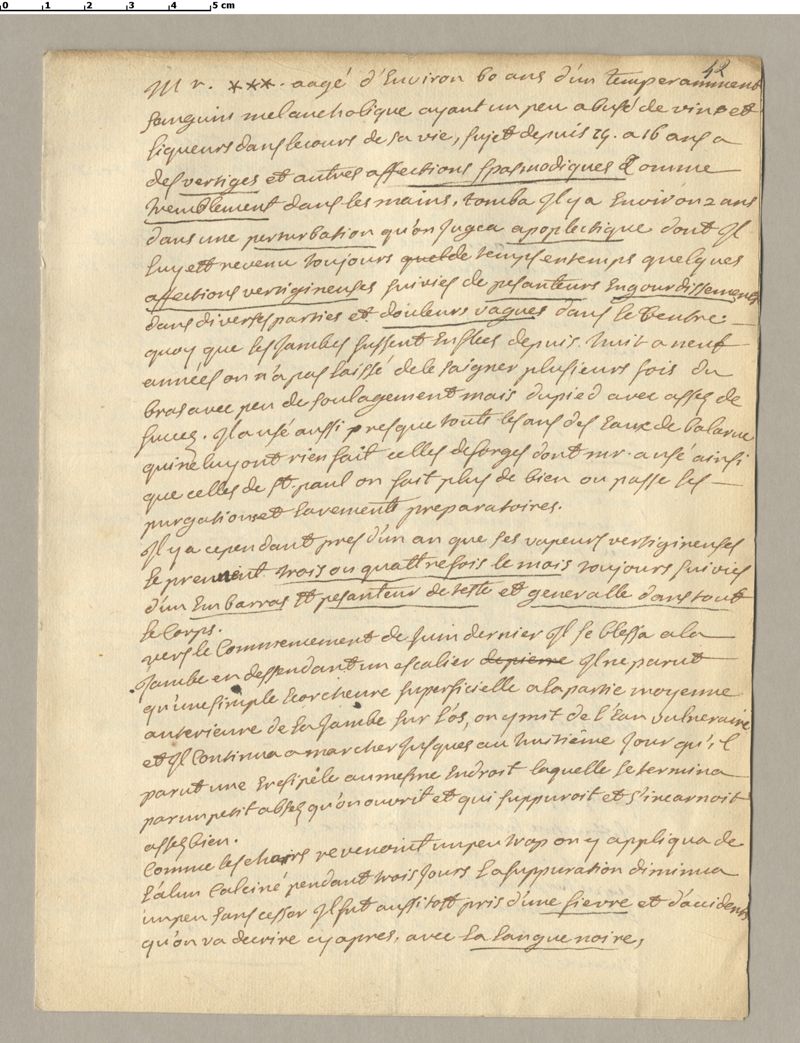 0 1 2 3 4 5 cm
42
Mr. ***. aagé d'Environ 60 ans d'un temperamment
sanguin melancholique ayant un peu abusé de vins et
liqueurs dans le cours de sa vie, sujet depuis 14. a 16 ans a
des vertiges et autres affections spasmodiques Comme
tremblement dans les mains, tomba Il y a Environ 2 ans
dans une perturbation qu'on Jugea apoplectique dont Il
luy est revenu toujours quelde temps en temps quelques
affections vertigineuses suivies de pesanteurs Engourdissements
dans diverses parties et douleurs vagues dans le Ventre.
quoy que les Jambes fussent Enflées depuis huit a neuf
années on n'a pas laissé de le saigner plusieurs fois du
bras avec peu de soulagement mais du pied avec asses de
succez. Il a usé aussi presque touts les ans des Eaux de balaruc
qui ne luy ont rien fait celles de forges dont mr. a usé ainsi
que celles de st. paul on fait plus de bien on passe les
purgations et lavements preparatoires.
Il y a cependant pres d'un an que ses vapeurs vertigineuses
le prennent trois ou quattre fois le mois toujours suivies
d'un Embarras Et pesanteur de teste et generalle dans tout
le Corps.
vers le Commencement de Juin dernier Il se blessa a la
Jambe en dessendant un escalier de pierre Il ne parut
qu'une simple Ecorcheure superficielle a la partie moyenne
anterieure de la Jambe sur l'os, on y mit de l'Eau vulneraire
et Il Continua a marcher Jusques au huitième Jour qu'il
parut une Eresipèle au mesme Endroit laquelle se termina
par un petit abses qu'on ouvrit et qui suppuroit et s'incarnoit
asses bien.
Comme les chairs revenoint un peu trop on y appliqua de
l'alun Calciné pendant trois Jours La suppuration diminua
un peu sans cesser Il fut aussi tost pris d'une fievre et d'accidents
qu'on va decrire cy apres, avec La Langue noire,